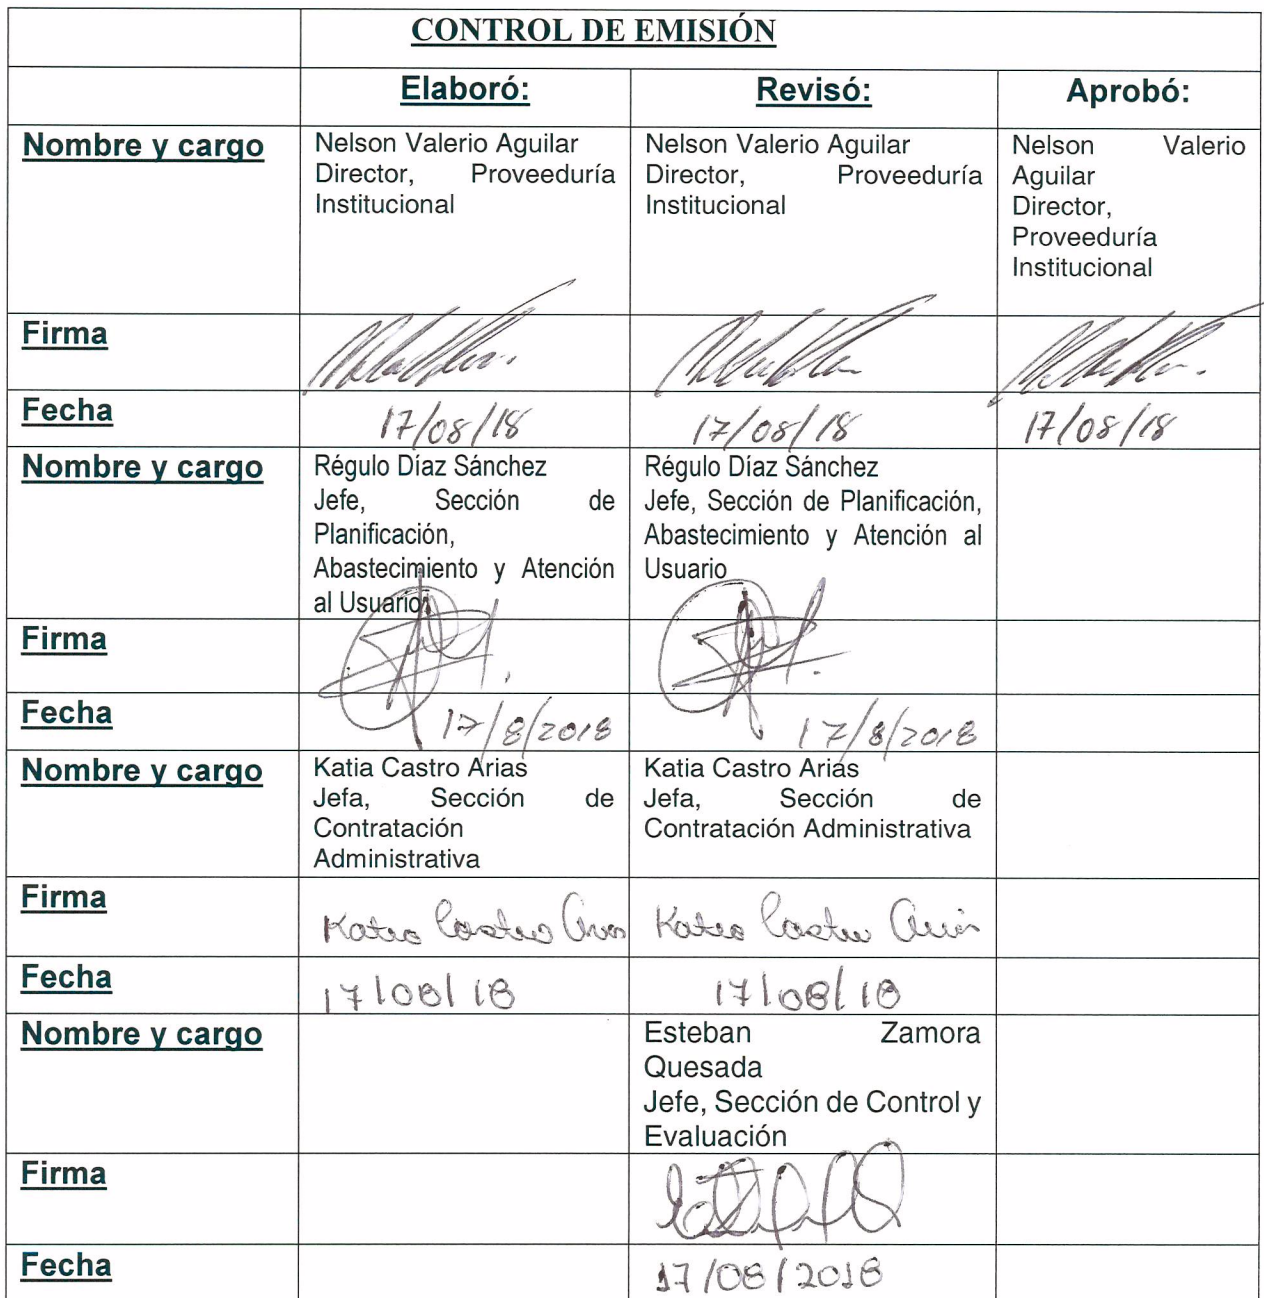 CONTROL DE EMISIÓN
Elaboró: Revisó: Aprobó:
Nombre y cargo
Nelson Valerio Aguilar
Director, Proveeduría
Institucional
Nelson Valerio Aguilar
Director, Proveeduría
Institucional
Nelson Valerio
Aguilar
Director,
Proveeduría
Institucional
Firma
Fecha
17/08/18
17/08/18
17/08/18
Nombre y cargo
Régulo Díaz Sánchez
Jefe, Sección de
Planificación,
Abastecimiento y Atención
al Usuario
Régulo Díaz Sánchez
Jefe, Sección de Planificación,
Abastecimiento y Atención al
Usuario
Firma
Fecha
17/8/2018
17/8/2018
Nombre y cargo
Katia Castro Arias
Jefa, Sección de
Contratación
Administrativa
Katia Castro Arias
Jefa, Sección de
Contratación Administrativa
Firma
Katia Castro Arias
Katia Castro Arias
Fecha
17/08/18
17/08/18
Nombre y cargo
Esteban Zamora
Quesada
Jefe, Sección de Control y
Evaluación
Firma
Fecha
17/08/2018